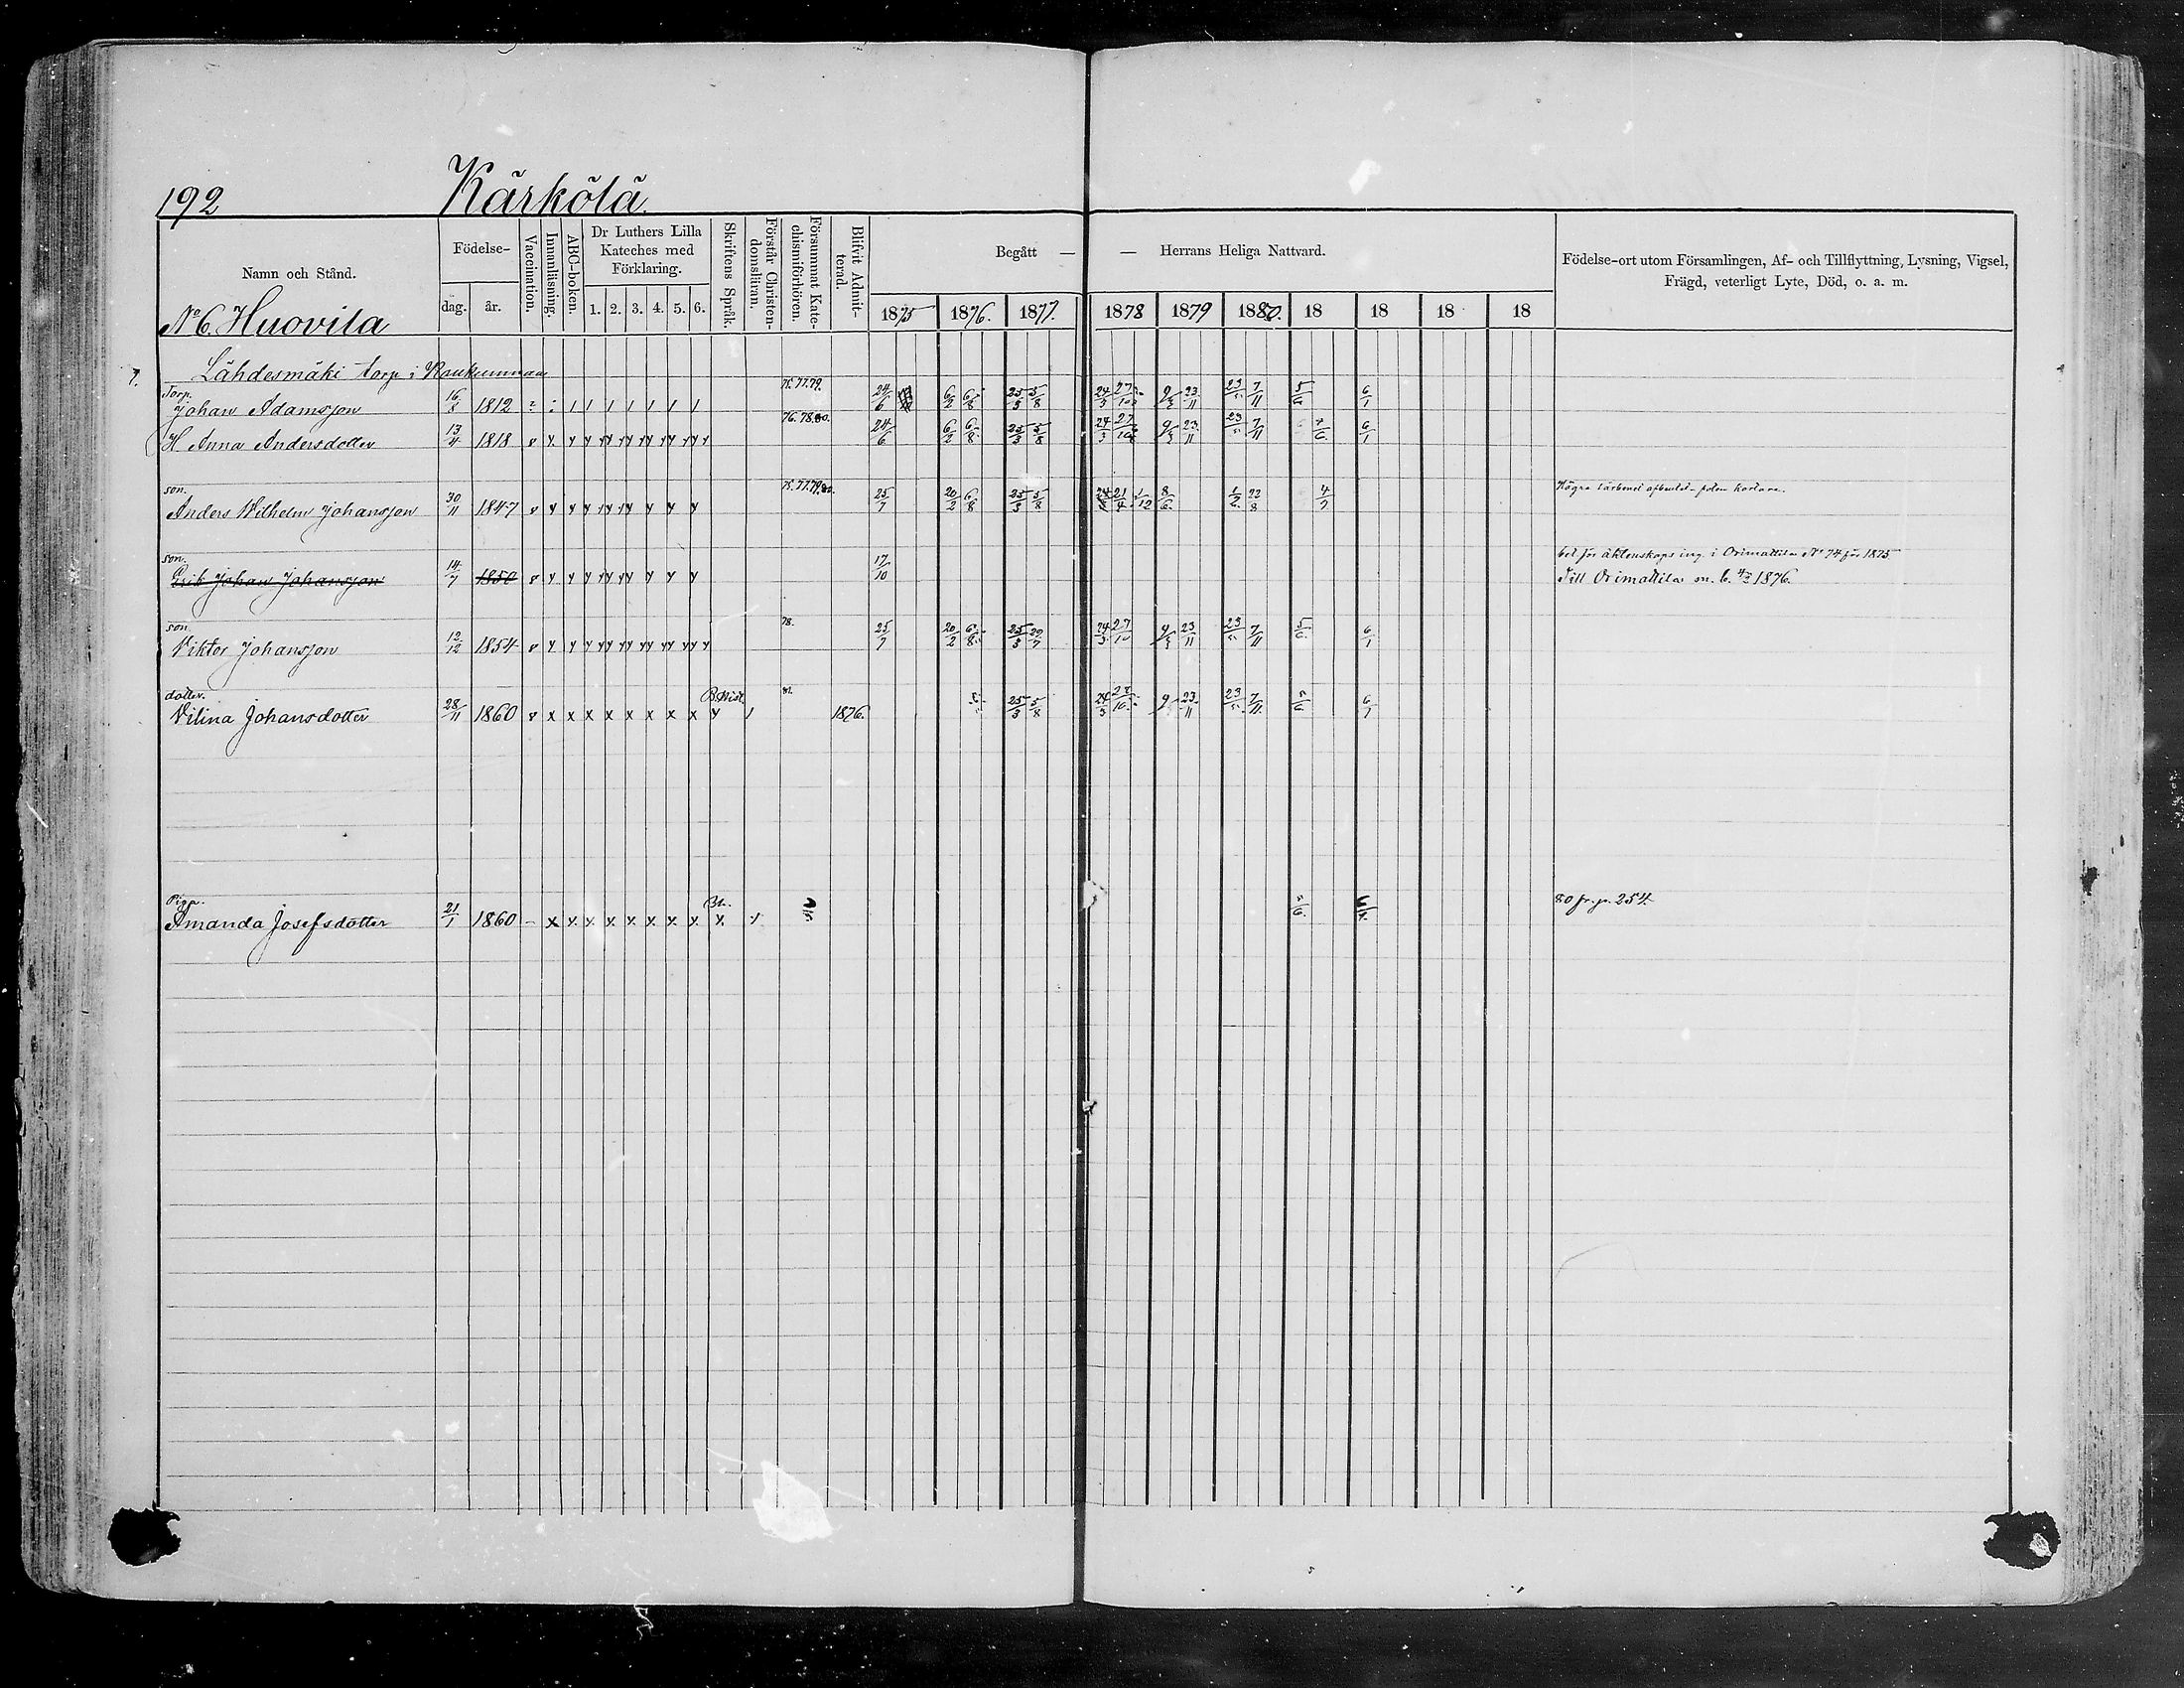 192 Kärkölä.
Namn och Stånd.
Födelse-
dag. år.
Vaccination.
Innanläsning.
ABC-boken.
Dr Luthers Lilla
Kateches med
Förklaring.
1. 2. 3. 4. 5. 6.
Skriftens Språk.
Förstår Christen-
domsläran.
Försummat Kate-
chismiförhören.
Blifvit Admit-
terad.
Begått — — Herrans Heliga Nattvard.
1875 1876. 1877. 1878 1879 1880. 18 18 18 18
Födelse-ort utom Församlingen, Af- och Tillflyttning, Lysning, Vigsel,
Frägd, veterligt Lyte, Död, o. a. m.
No 6. Huovila
Lähdesmäki torp i
Torp.
Johan Adamsson 16/8 1812 75.77.79. 24/6 6/2 6/8 25/3 5/8 24/3 27/10 9/3 23/11 23/5 7/11 5/6 6/1
H. Anna Andersdotter 13/4 1818 76.78.80. 24/6 6/2 6/8 25/3 5/8 24/3 27/10 9/3 23/11 23/5 7/11 6/1
son.
Anders Wilhelm Johansson 30/11 1847 75.77.79.80. 25/7 20/2 6/8 25/3 5/8 21/4 1/12 8/6 22/8 4/7 Högra
son.
Erik Johan Johansson 14/7 1850 17/10 bet. för äktenskaps ing. i Orimattila No 74 för 1875
Till Orimattila m. b. 1876.
son.
Viktor Johansson 12/12 1854 78. 25/7 20/2 6/8 25/3 29/7 24/3 27/10 9/3 23/11 23/5 7/11 5/6 6/1
dotter.
Vilina Johansdotter 28/11 1860 1876. 25/3 5/8 24/3 27/10 9/3 23/11 23/5 7/11 5/6 6/1
Piga.
Amanda Josefsdotter 21/1 1860 5/6 80 fr. p. 254.